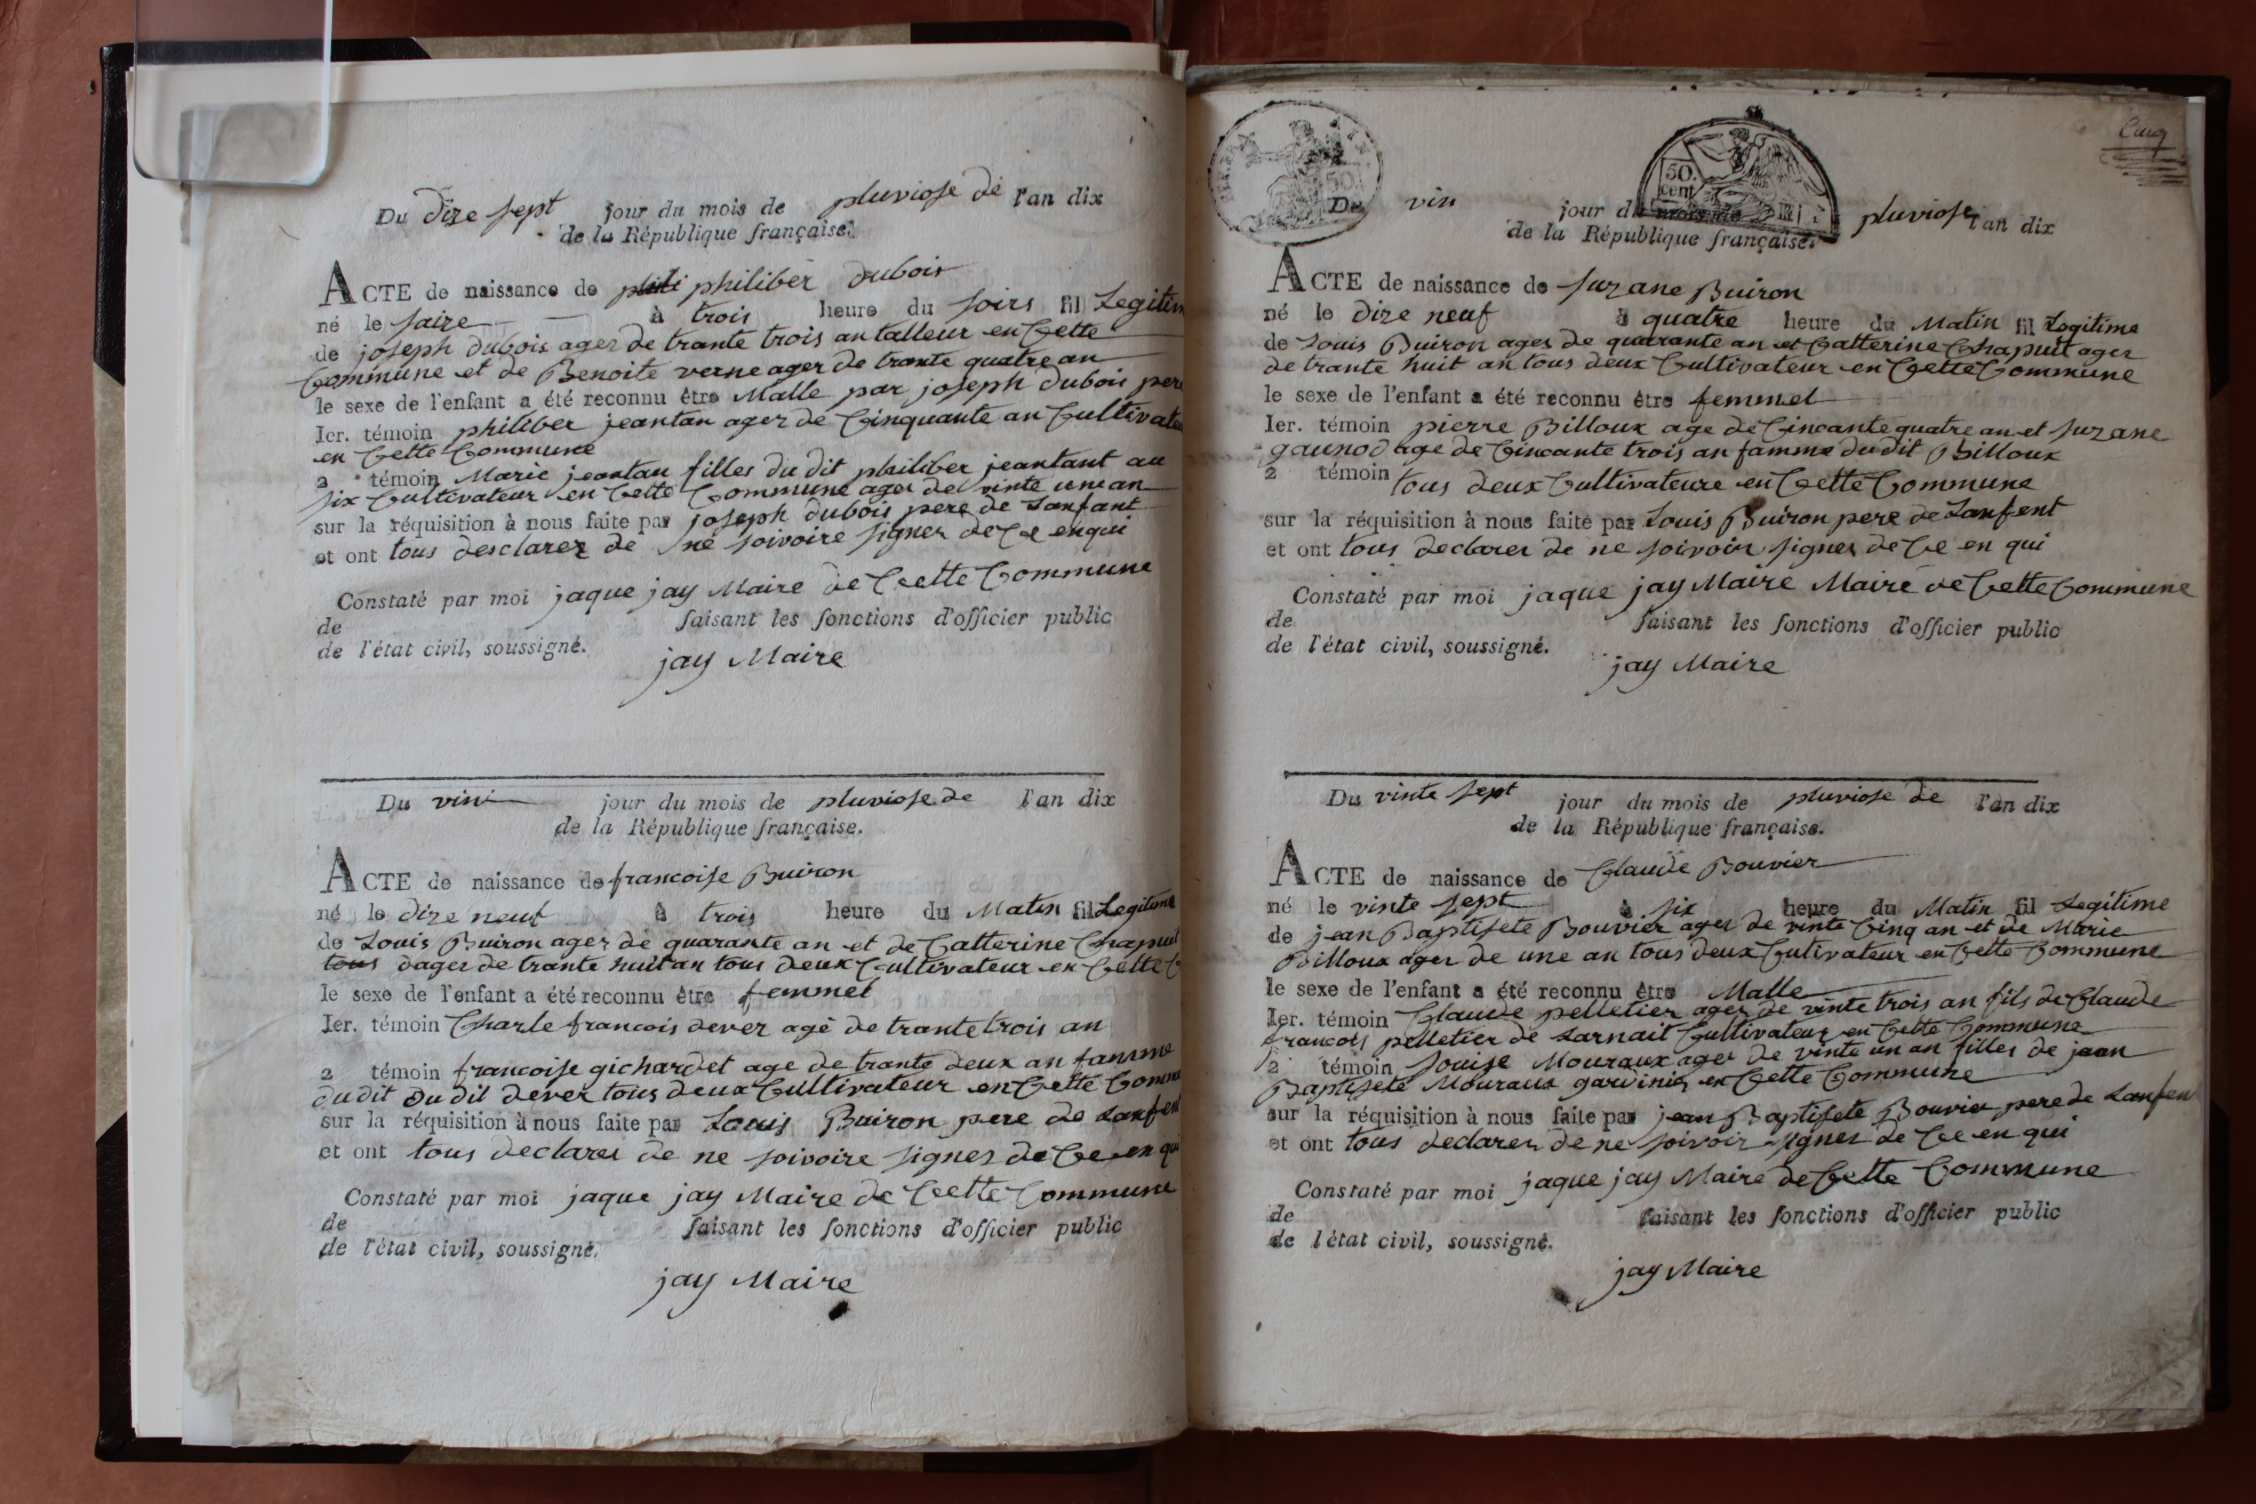 Du dize sept jour du mois de pluviose de l'an dix
de la République française.
ACTE de naissance de philiber dubois
né le saize à trois heure du soirs fil Legitim
de joseph dubois ager de trante trois an talleur en Cette
Commune et de Benoite verne ager de trante quatre an
le sexe de l'enfant a été reconnu être Malle par joseph dubois pere
Ier. témoin philiber jeantan ager de Cinquante an Cultivateu
en Cette Commune
2 témoin Marie jeantau filles du dit philiber jeantant au
six Cultivateur en Cette Commune ager de vinte une an
sur la réquisition à nous faite par joseph dubois pere de Lanfant
et ont tous desclarer de né soivoire signer de Ce enqui
Constaté par moi jaque jay Maire de Ceette Commune
de faisant les fonctions d'officier public
de l'état civil, soussigné.
jay Maire
Du vint jour du mois de pluviose de l'an dix
de la République française.
ACTE de naissance de francoise Buiron
né le dize neuf à trois heure du Matin fil Legitime
de Louis Buiron ager de quarante an et de Catterine Chapuit
tous dager de trante huit an tous deux Cultivateur en Cette C
le sexe de l'enfant a été reconnu être femmel
Ier. témoin Charle francois dever agé de trante trois an
2 témoin francoise gichardet age de trante deux an famme
du dit du dit dever tous deux Cultivateur en Cette Comm
sur la réquisition à nous faite par Louis Buiron pere de Lanfent
et ont tous declarer de ne soivoire signer de Ce en qui
Constaté par moi jaque jay Maire de Ceette Commune
de faisant les fonctions d'officier public
de l'état civil, soussigné.
jay Maire
Cinq
50
50 cent
Du vin jour du mois de pluviose l'an dix
de la République française.
ACTE de naissance de suzane Buiron
né le dize neuf à quatre heure du Matin fil Legitime
de Louis Buiron ager de quarante an et Catterine Chapuit ager
de trante huit an tous deux Cultivateur en Cette Commune
le sexe de l'enfant a été reconnu être femmel
Ier. témoin pierre Billoux age de Cincante quatre an et suzane
gaunod age de Cincante trois an famme du dit Billoux
2 témoin tous deux Cultivateure en Cette Commune
sur la réquisition à nous faite par Louis Buiron pere de Lanfent
et ont tous declarer de ne soivoir signer de Ce en qui
Constaté par moi jaque jay Maire Maire de Cette Commune
de faisant les fonctions d'officier public
de l'état civil, soussigné.
jay Maire
Du vinte sept jour du mois de pluviose de l'an dix
de la République française.
ACTE de naissance de Claude Bouvier
né le vinte sept à six heure du Matin fil Legitime
de jean Baptisete Bouvier ager de vinte Cinq an et de Marie
Billoux ager de une an tous deux Cutivateur en Cette Commune
le sexe de l'enfant a été reconnu être Malle
Ier. témoin Claude pelletier ager de vinte trois an fils de Claude
francois pelletier de Larnait Cultivateur en Cette Commune
2 témoin Louise Mouraux ager de vinte un an filles de jean
Baptisete Mouraux gardinier en Cette Commune
sur la réquisition à nous faite par jean Baptisete Bouvier pere de Lanfen
et ont tous declarer de ne soivoir signer de Ce en qui
Constaté par moi jaque jay Maire de Cette Commune
de faisant les fonctions d'officier public
de l'état civil, soussigné.
jay Maire